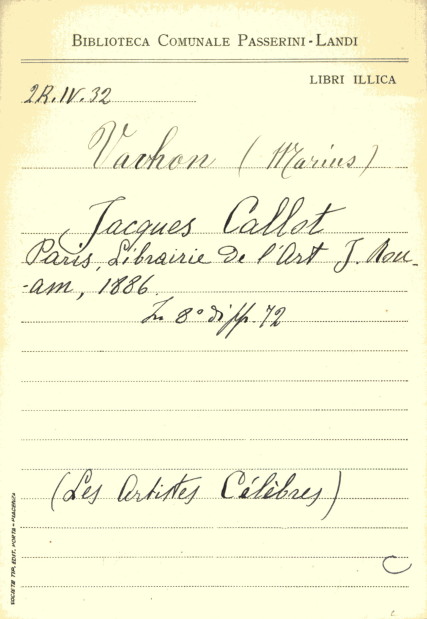 BIBLIOTECA COMUNALE PASSERINI-LANDI
LIBRI ILLICA
2R.IV.32
Vachon (Marius)
Jacques Callot
Paris, Librairie de l'Art J. Rou-
-am, 1886.
In 8° di pp. 72
(Les Artistes Célèbres)
SOCIETÀ TIP. EDIT. PORTA - PIACENZA